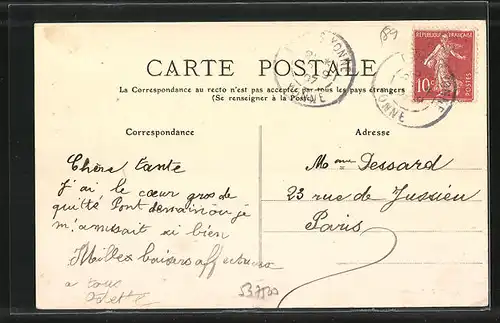 CARTE POSTALE
La Correspondance au recto n'est pas acceptée par tous les pays étrangers
(Se renseigner à la Poste)
REPUBLIQUE FRANÇAISE
10c
YONNE
Correspondance
Adresse
Chère tante
J'ai le cœur gros de
quitté Pont demain où je
m'amusait si bien
Milles baisers affectueux
a tous
Odette
Mme Dessard
23 rue de Jussieu
Paris